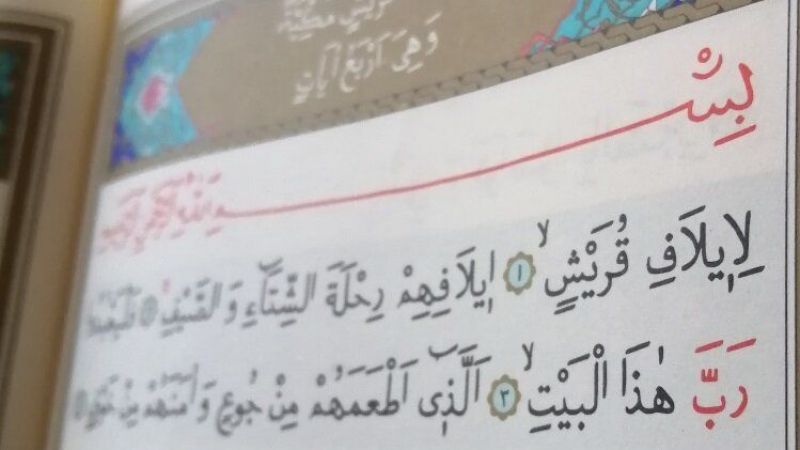 قُرَيْشٍ مَكِّيَّةٌ
وَهِىَ اَرْبَعُ اٰيَاتٍ
بِسْــــمِ اللّٰهِ الرَّحْمٰنِ الرَّح۪يمِ
لِا۪يلَافِ قُرَيْشٍۙ ﴿١﴾ ا۪يلَافِهِمْ رِحْلَةَ الشِّتَٓاءِ وَالصَّيْفِۚ ﴿٢﴾ فَلْيَعْبُدُوا
رَبَّ هٰذَا الْبَيْتِۙ ﴿٣﴾ اَلَّذ۪ٓى اَطْعَمَهُمْ مِنْ جُوعٍ وَاٰمَنَهُمْ مِنْ خَوْفٍ